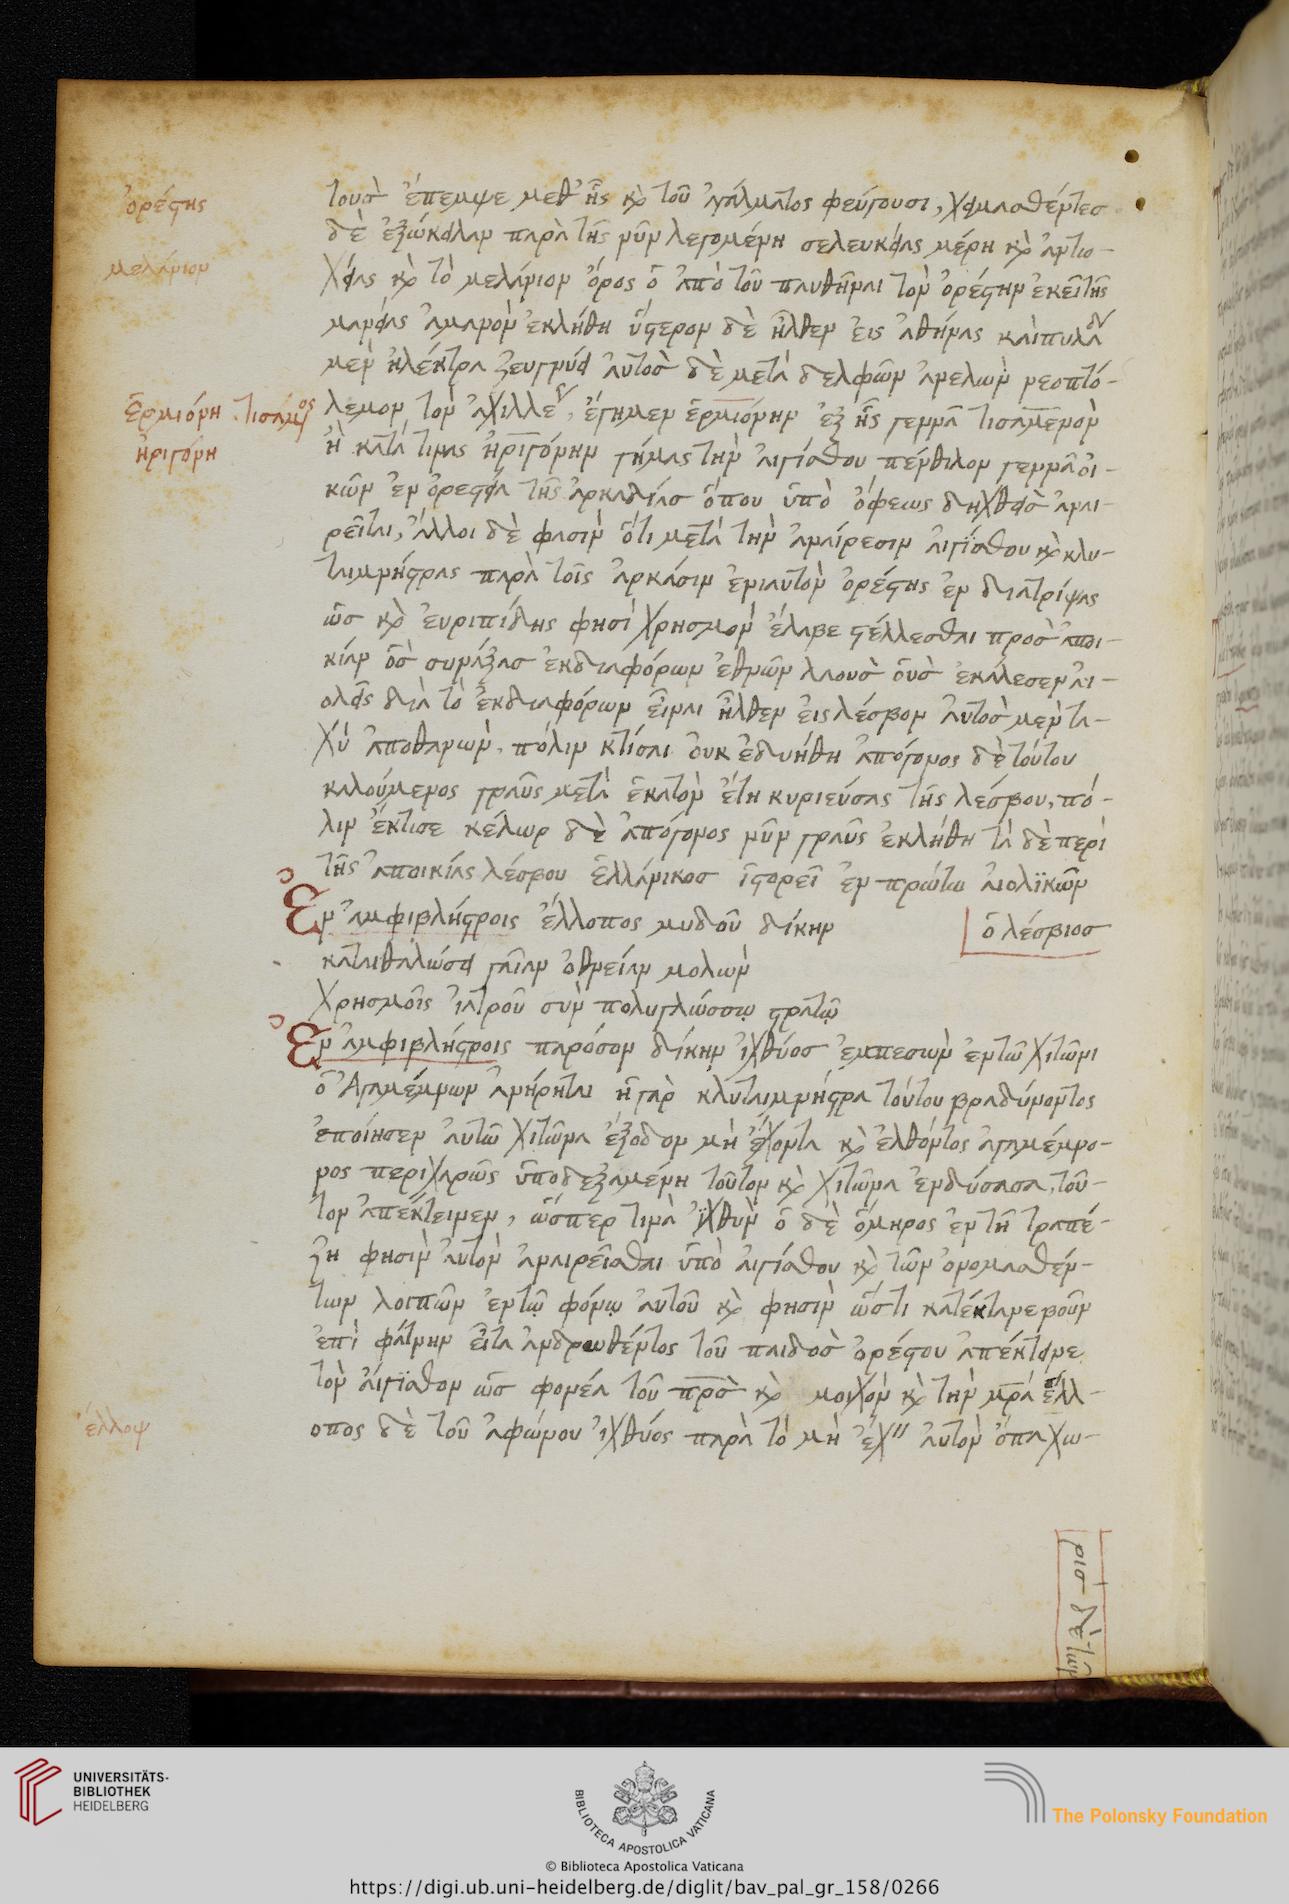 ὀρέστης
μελάντιον
Ἑρμιόνη . τισαμενος
ἠριγόνη
τοὺσ ἔπεμψε μεθ' ἧς καὶ τοῦ ἀγάλματος φεύγουσι, χειμασθέντεσ
δὲ ἐξώκειλαν παρὰ τῆς νῦν λεγομένη σελευκείας μέρη καὶ ἀντιο-
χείας καὶ τὸ μελάντιον ὄρος ὃ ἀπὸ τοῦ παυθῆναι τὸν ὀρέστην ἐκεῖ τῆς
μανείας ἀμανὸν ἐκλήθη ὕστερον δὲ ἦλθεν εἰς ἀθήνας καὶ πυλάδ
μὲν ἠλέκτρα ζευγνύει αὐτὸσ δὲ μετὰ δελφῶν ἀνελὼν νεοπτό-
λεμον τὸν ἀχιλλε , ἔγημεν ἑρμιόνην ἐξ ἧς γεννᾶ τισαμενὸν
ἢ κατά τινας ἠριγόνην γήμας τὴν αἰγίσθου πένθιλον γεννᾶ οἰ-
κῶν ἐν ὀρεστεία τῆς ἀρκαδίασ ὅπου ὑπὸ ὄφεως δηχθεὶσ ἀναι-
ρεῖται, ἄλλοι δὲ φασὶν ὅτι μετὰ τὴν ἀναίρεσιν αἰγίσθου καὶ κλυ-
ταιμνήστρας παρὰ τοῖς ἀρκάσιν ἐνιαυτὸν ὀρέστης ἐν διατρίψας
ὥσ καὶ εὐριπίδης φησὶ χρησμὸν ἔλαβε στέλλεσθαι προσ ἀποι-
κίαν ὃσ συνάξασ ἐκ διαφόρων ἐθνῶν λαοὺσ οὓσ ἐκάλεσεν αἰ-
ολεῖς διὰ τὸ ἐκ διαφόρων εἶναι ἦλθεν εἰς λέσβον αὐτὸσ μὲν τα-
χὺ ἀποθανὼν . πόλιν κτίσαι οὐκ ἐδυνήθη ἀπόγονος δὲ τούτου
καλούμενος γραῦς μετὰ ἑκατὸν ἔτη κυριεύσας τῆς λέσβου, πό-
λιν ἔκτισε κέλωρ δὲ ἀπόγονος νῦν γραῦς ἐκλήθη τὰ δὲ περὶ
τῆς ἀποικίας λέσβου ἑλλάνικοσ ἱστορεῖ ἐν πρώτω αἰολϊκῶν
Ἐν ἀμφιβλήστροις ἔλλοπος μυδοῦ δίκην
ὁ λέσβιοσ
καταιθαλώσει γαῖαν ὀθνείαν μολὼν
χρησμοῖς ἰατροῦ σὺν πολυγλώσσῳ στρατῷ
Ἐν ἀμφιβλήστροις παρόσον δίκην ἰχθύοσ ἐμπεσὼν ἐν τῶ χιτῶνι
ὁ Ἀγαμέμνων ἀνήρηται ἡ γὰρ κλυταιμνήστρα τούτου βραδύνοντος
ἐποίησεν αὐτῶ χιτῶνα ἔξοδον μὴ ἔχοντα καὶ ἐλθόντος ἀγαμέμνο-
νος περιχαρῶς ὑποδεξαμένη τοῦτον καὶ χιτῶνα ἐνδύσασα, τοῦ-
τον ἀπέκτεινεν, ὥσπερ τινὰ ἰχθὺν ὁ δὲ ὅμηρος ἐν τῆ τραπέ-
ζη φησὶν αὐτὸν ἀναιρεῖσθαι ὑπὸ αἰγίσθου καὶ τῶν ὀνομασθέν-
των λοιπῶν ἐν τῷ φόνῳ αὐτοῦ καὶ φησὶν ὥστι κατέκτανε βοῦν
ἐπὶ φάτνην εἶτα ἀνδρωθέντος τοῦ παιδοσ ὀρέστου ἀπέκτεινε
τὸν αἴγϊσθον ὡσ φονέα τοῦ πρσ καὶ μοιχὸν καὶ τὴν μρα ἔλλ-
ἔλλοψ
οπος δὲ τοῦ ἀφώνου ἰχθύος παρὰ τὸ μὴ ἔχ αὐτὸν ὄπα χω-
ρισ δὲ τῶν
UNIVERSITÄTS-
BIBLIOTHEK
HEIDELBERG
BIBLIOTECA APOSTOLICA VATICANA
The Polonsky Foundation
© Biblioteca Apostolica Vaticana
https://digi.ub.uni-heidelberg.de/diglit/bav_pal_gr_158/0266